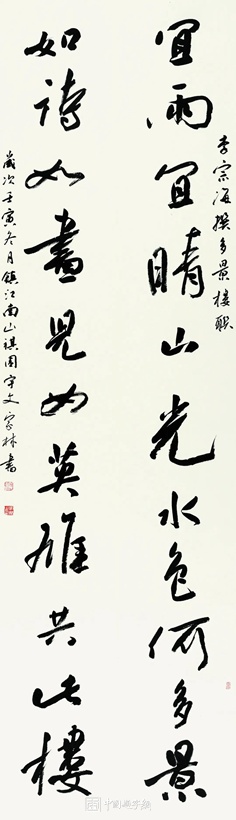 李宗海撰多景樓聯
宜雨宜晴山光水色何多景
如詩如畫兒女英雄共此樓
歲次壬寅冬月鎮江南山祺園宇文家林書